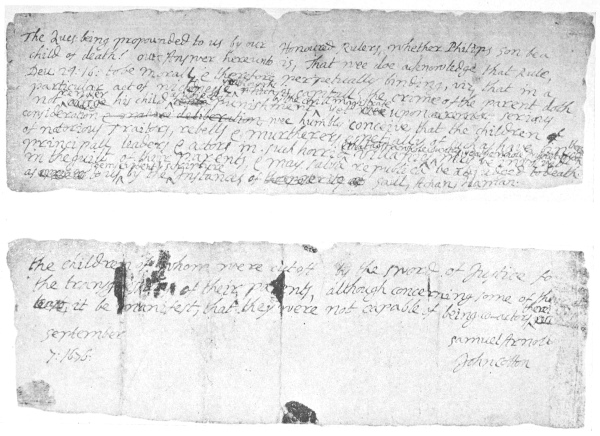 The Ques being propounded to us by our Honoured Rulers, whether Philips Son be a
child of death! our Answer hereunto is, that wee doe acknowledge that Rule,
Deu 24.16: to be Morall, & therefore perpetually binding, viz, that in a
particular act of wickednesse, capitall, the crime of the parent doth
not render his child punishment by the civil magistrate yet upon serious
consideration wee humbly conceive that the children of
of notorious traitors, rebells & murtherers, such as have bin
principall leaders & actors in such horrid villanies
in the guilt of their parents, & may salva republica be adjudged to death
as to us by the instances of Saul, Achan, Haman.
the children of whom were cut off by the sword of Justice for
the transgressions of their parents, although concerning some of
it be manifest, that they were not capable of being coactors
Samuel Arnold
September
7: 1676.
John Cotton